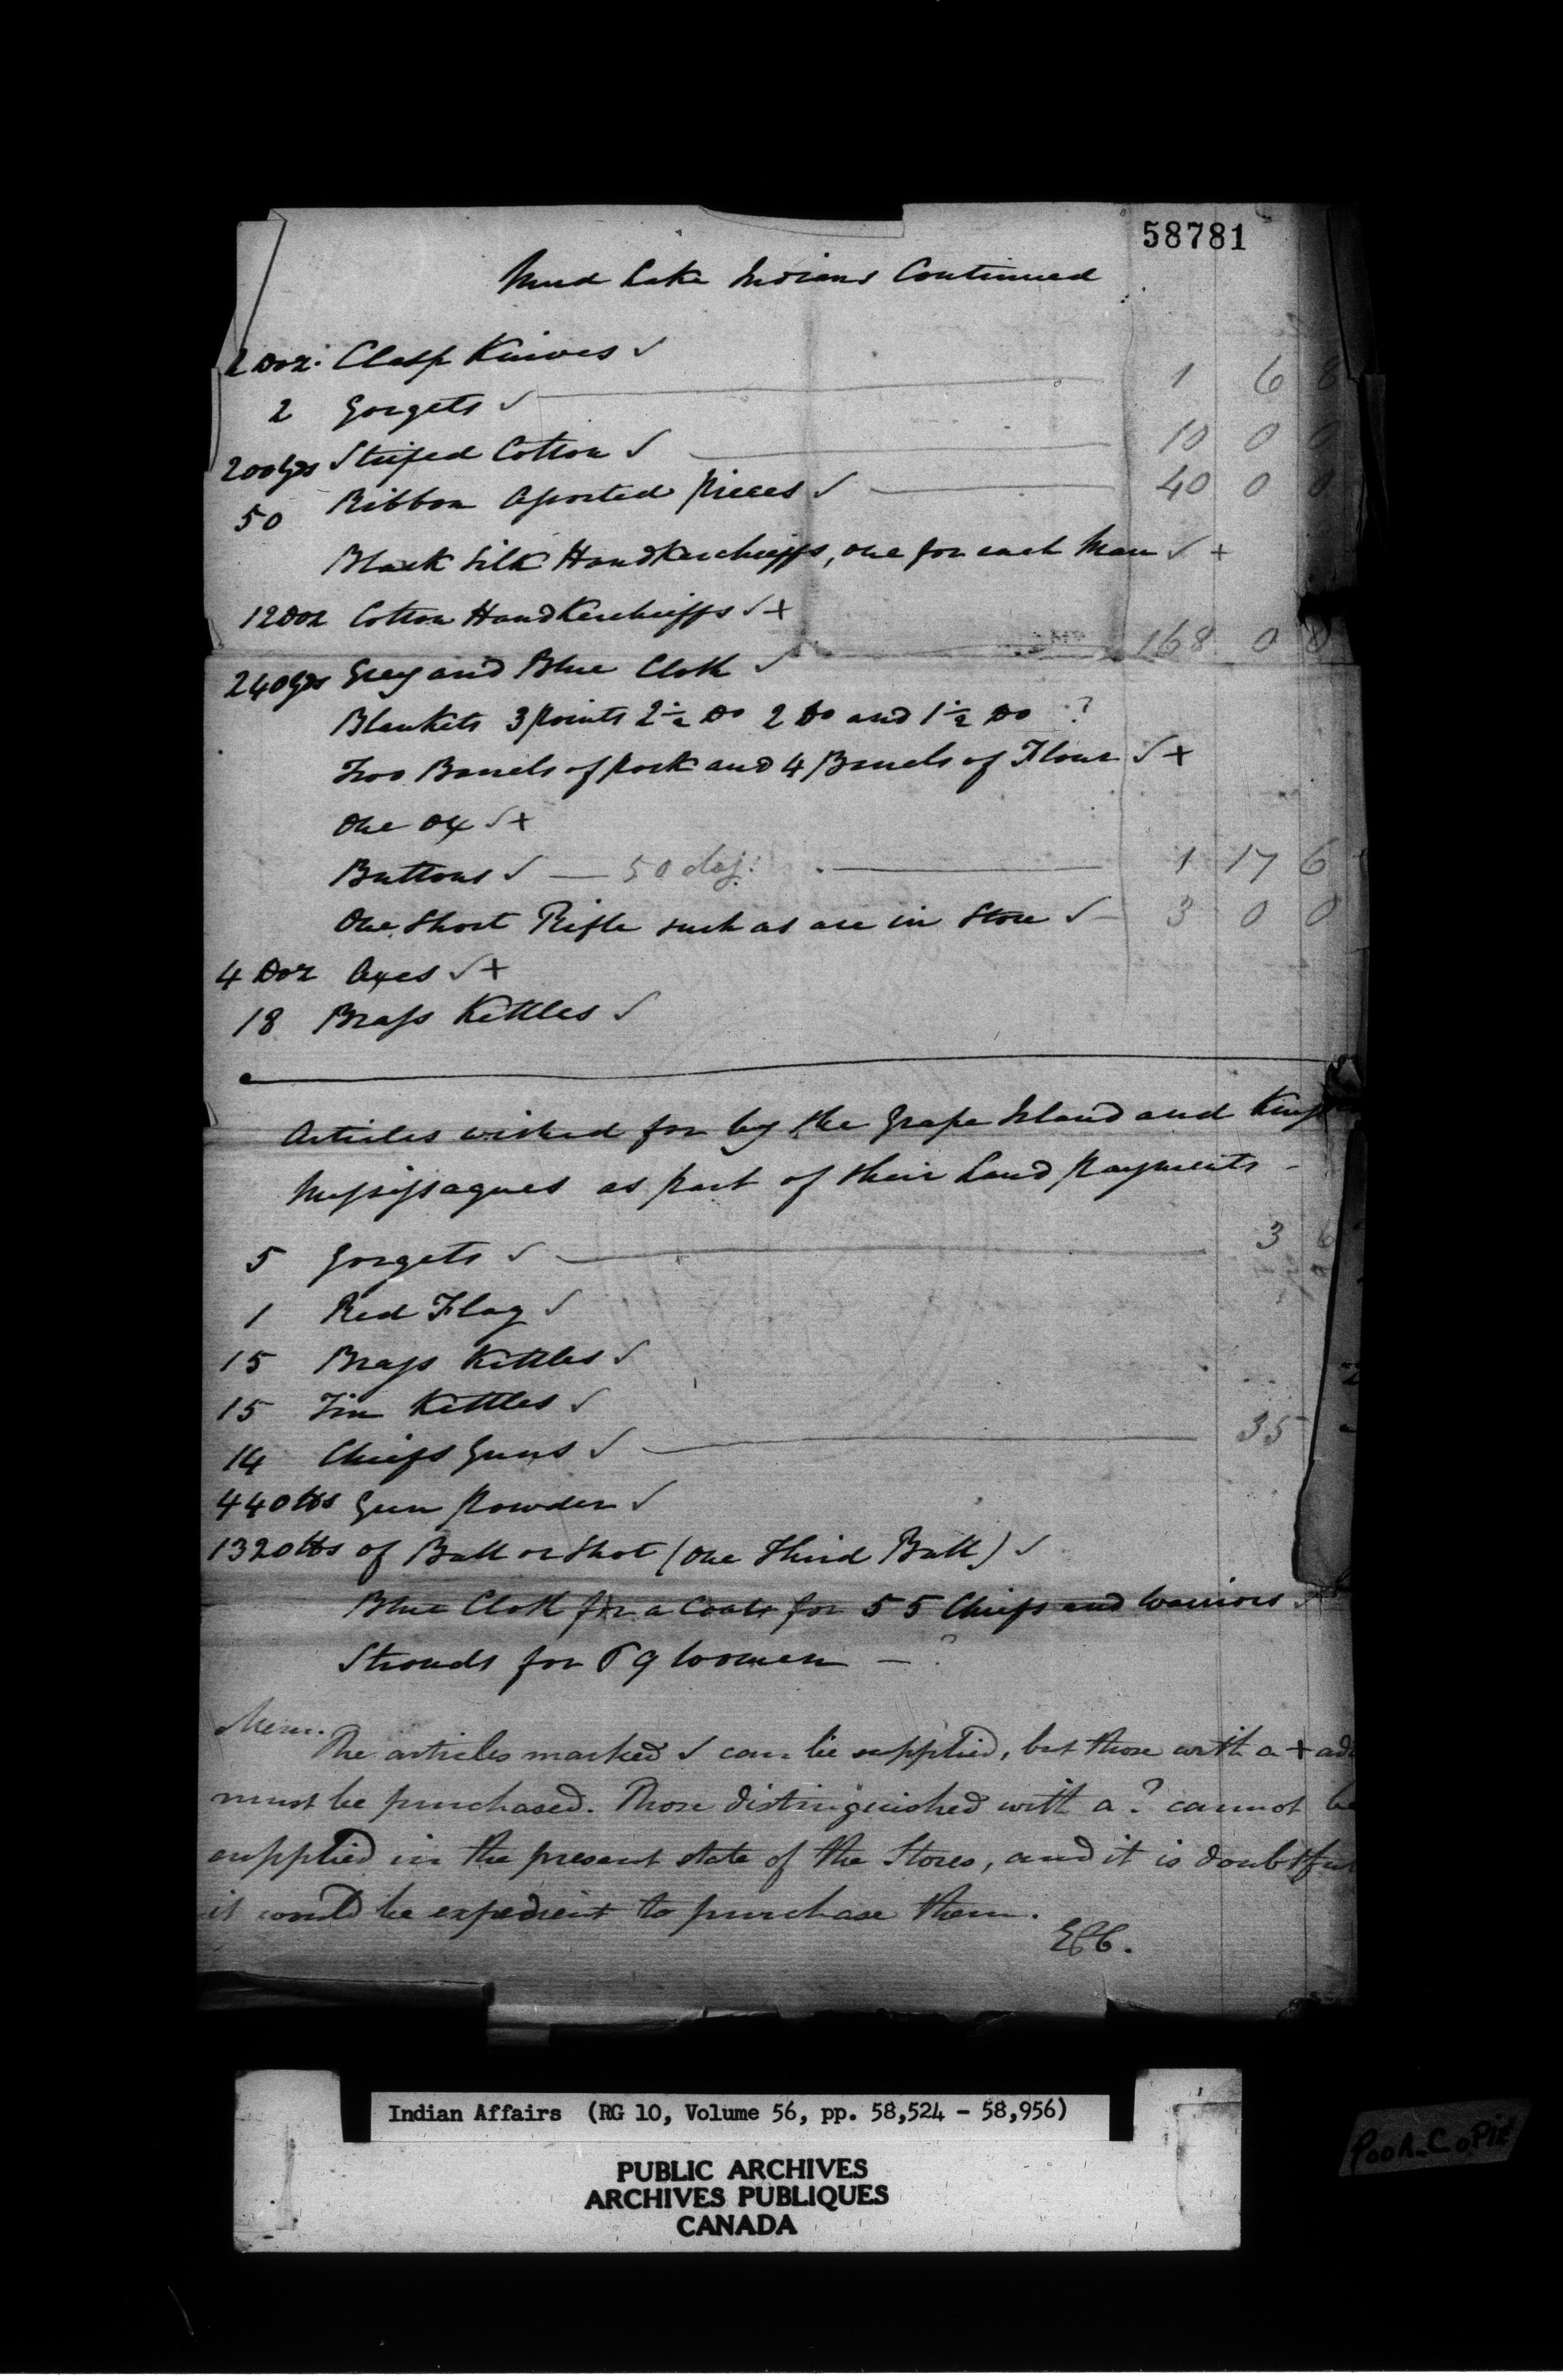 58781
Mud Lake Indians Continued
2 Doz. Clasp Knives ✓
2 Gorgets ✓ 1 6 8
200 Yds Striped Cotton ✓ 10 0 0
50 Ribbon Assorted pieces ✓ 40 0 0
Black Silk Handkerchieffs, one for each Man ✓ +
12 Doz Cotton Handkerchieffs ✓ +
240 Yds Grey and Blue Cloth ✓ 168 0 0
Blankets 3 points 2½ Do 2 Do and 1½ Do ?
Two Barrels of pork and 4 Barrels of Flour ✓ +
One Ox ✓ +
Buttons ✓ — 50 doz: 1 17 6
One Short Rifle such as are in Store ✓ 3 0 0
4 Doz Axes ✓ +
18 Brass Kettles ✓
Articles wished for by the Grape Island and
Missisagues as part of their Land Payments -
5 Gorgets ✓ 3 6
1 Red Flag ✓
15 Brass Kettles ✓
15 Tin Kettles ✓
14 Chiefs Guns ✓ 35
440 lbs Gun Powder ✓
1320 lbs of Ball or Shot (One Third Ball) ✓
Blue Cloth for a Coat for 55 Chiefs and Warriors ✓
Strouds for 69 Women — ?
Mem.
The articles marked ✓ can be supplied, but those with a +
must be purchased. Those distinguished with a ? cannot be
supplied in the present state of the Stores, and it is doubtful
it would be expedient to purchase them.
Indian Affairs (RG 10, Volume 56, pp. 58,524 - 58,956)
PUBLIC ARCHIVES
ARCHIVES PUBLIQUES
CANADA
POOR COPIE